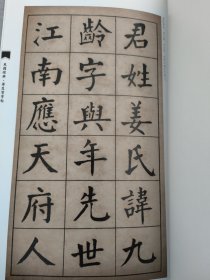 君姓姜氏諱九
齡字與年先世
江南應天府人